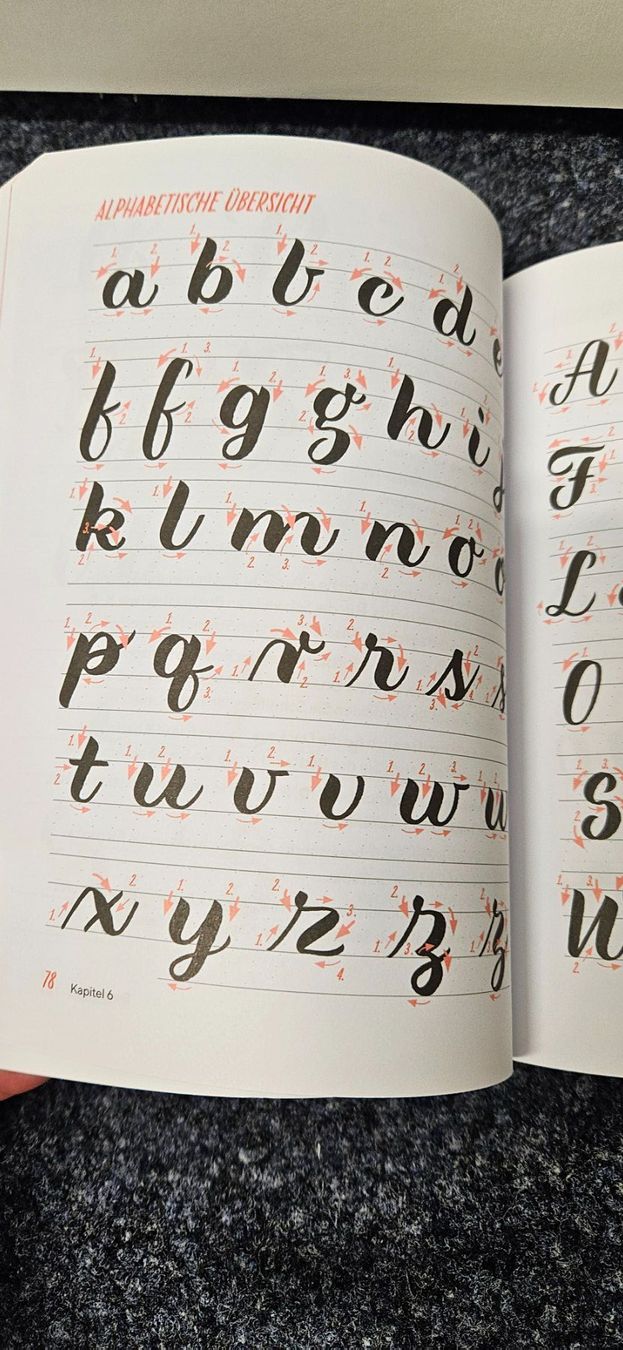 ALPHABETISCHE ÜBERSICHT
a b b c d e
f f g g h i j
k l m n o o
p q r r s s
t u v v w w
x y z z z
78 Kapitel 6
A
F
L
O
S
W